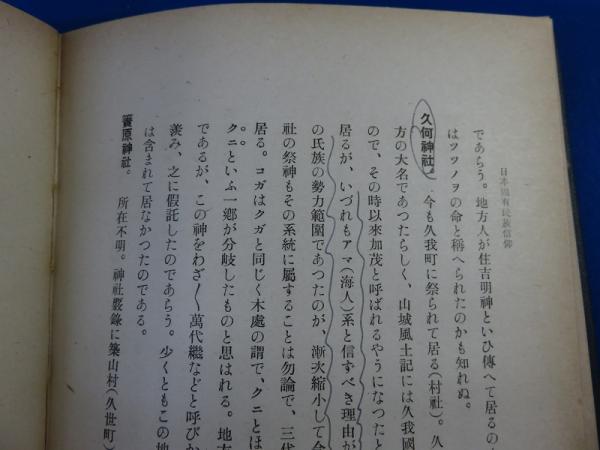 日本固有民族信仰
であらう。地方人が住吉明神といひ傳へて居るの
はツツノヲの命と稱へられたのかも知れぬ。
久何神社。 今も久我町に祭られて居る(村社)。久
方の大名であつたらしく、山城風土記には久我國
ので、その時以來加茂と呼ばれるやうになつたと
居るが、いづれもアマ(海人)系と信ずべき理由が
の氏族の勢力範圍であつたのが、漸次縮小して今
社の祭神もその系統に屬することは勿論で、三代
居る。コガはクガと同じく木處の謂で、クニとほ
クニといふ一鄕が分岐したものと思はれる。地方
であるが、この神をわざ〳〵萬代繼などと呼びか
羨み、之に假託したのであらう。少くともこの地
は含まれて居なかつたのである。
簀原神社。 所在不明。神社覈錄に築山村(久世町)